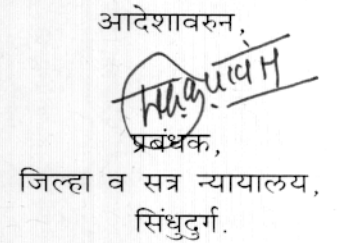 आदेशावरुन,
प्रबंधक,
जिल्हा व सत्र न्यायालय,
सिंधुदुर्ग.